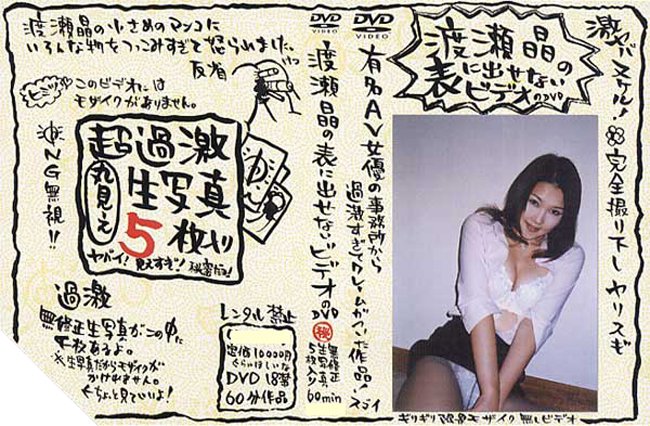 渡瀬晶の小さめのマンコに
いろんな物をつっこみすぎて怒られました。
反省
ヒミツ
このビデオには
モザイクがありません。
NG無視!!
超過激
丸見え
生写真
5枚入り
ヤバイ!見えすぎ!
過激
無修正生写真がこの中に
5枚あるよ。
生写真だからモザイクが
かけれません。
ちょっと見ていいよ!
レンタル禁止
定価10000円
ぐらいほしいな
DVD 18禁
60分作品
DVD
VIDEO
渡瀬晶の表に出せないビデオのDVD
㊙
無修正
生写真
5枚入り
60min
DVD
VIDEO
有名AV女優の事務所から
過激すぎてクレームがついた作品。
スゴイ
渡瀬晶の
表に出せない
ビデオのDVD
激ヤバヌケル!
完全撮り下しヤリスギ
ギリギリ超モザイク無しビデオ